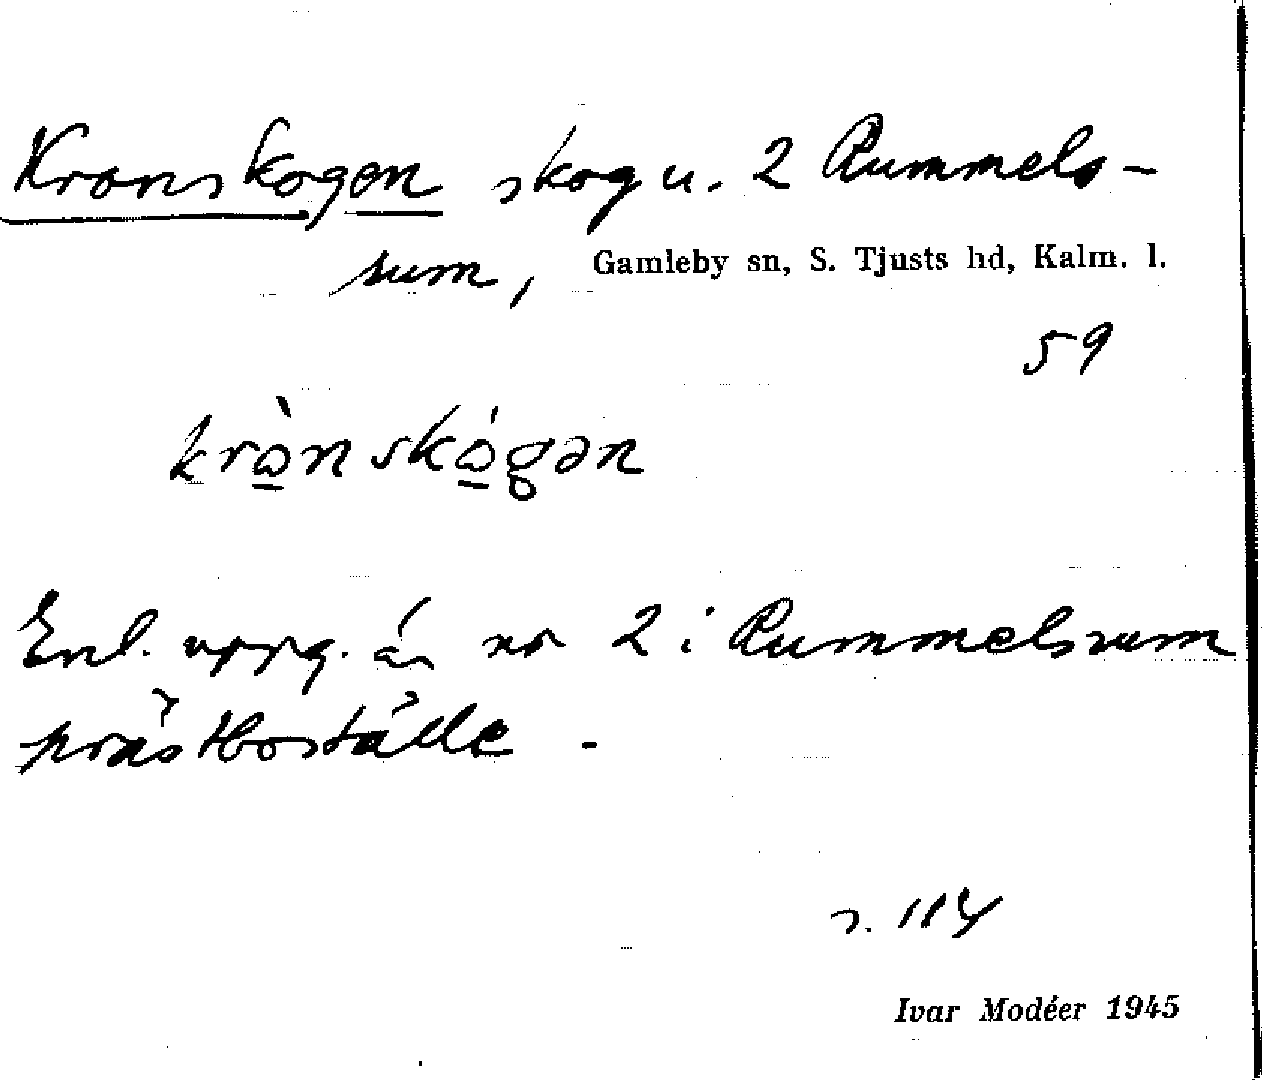 Kronskogen skog u. 2 Rummels-
sum, Gamleby sn, S. Tjusts hd, Kalm. l.
59
krò̱nskó̱gən
Enl. uppg. är nr 2 i Rummelsrum
prästboställe -
s. 114
Ivar Modéer 1945